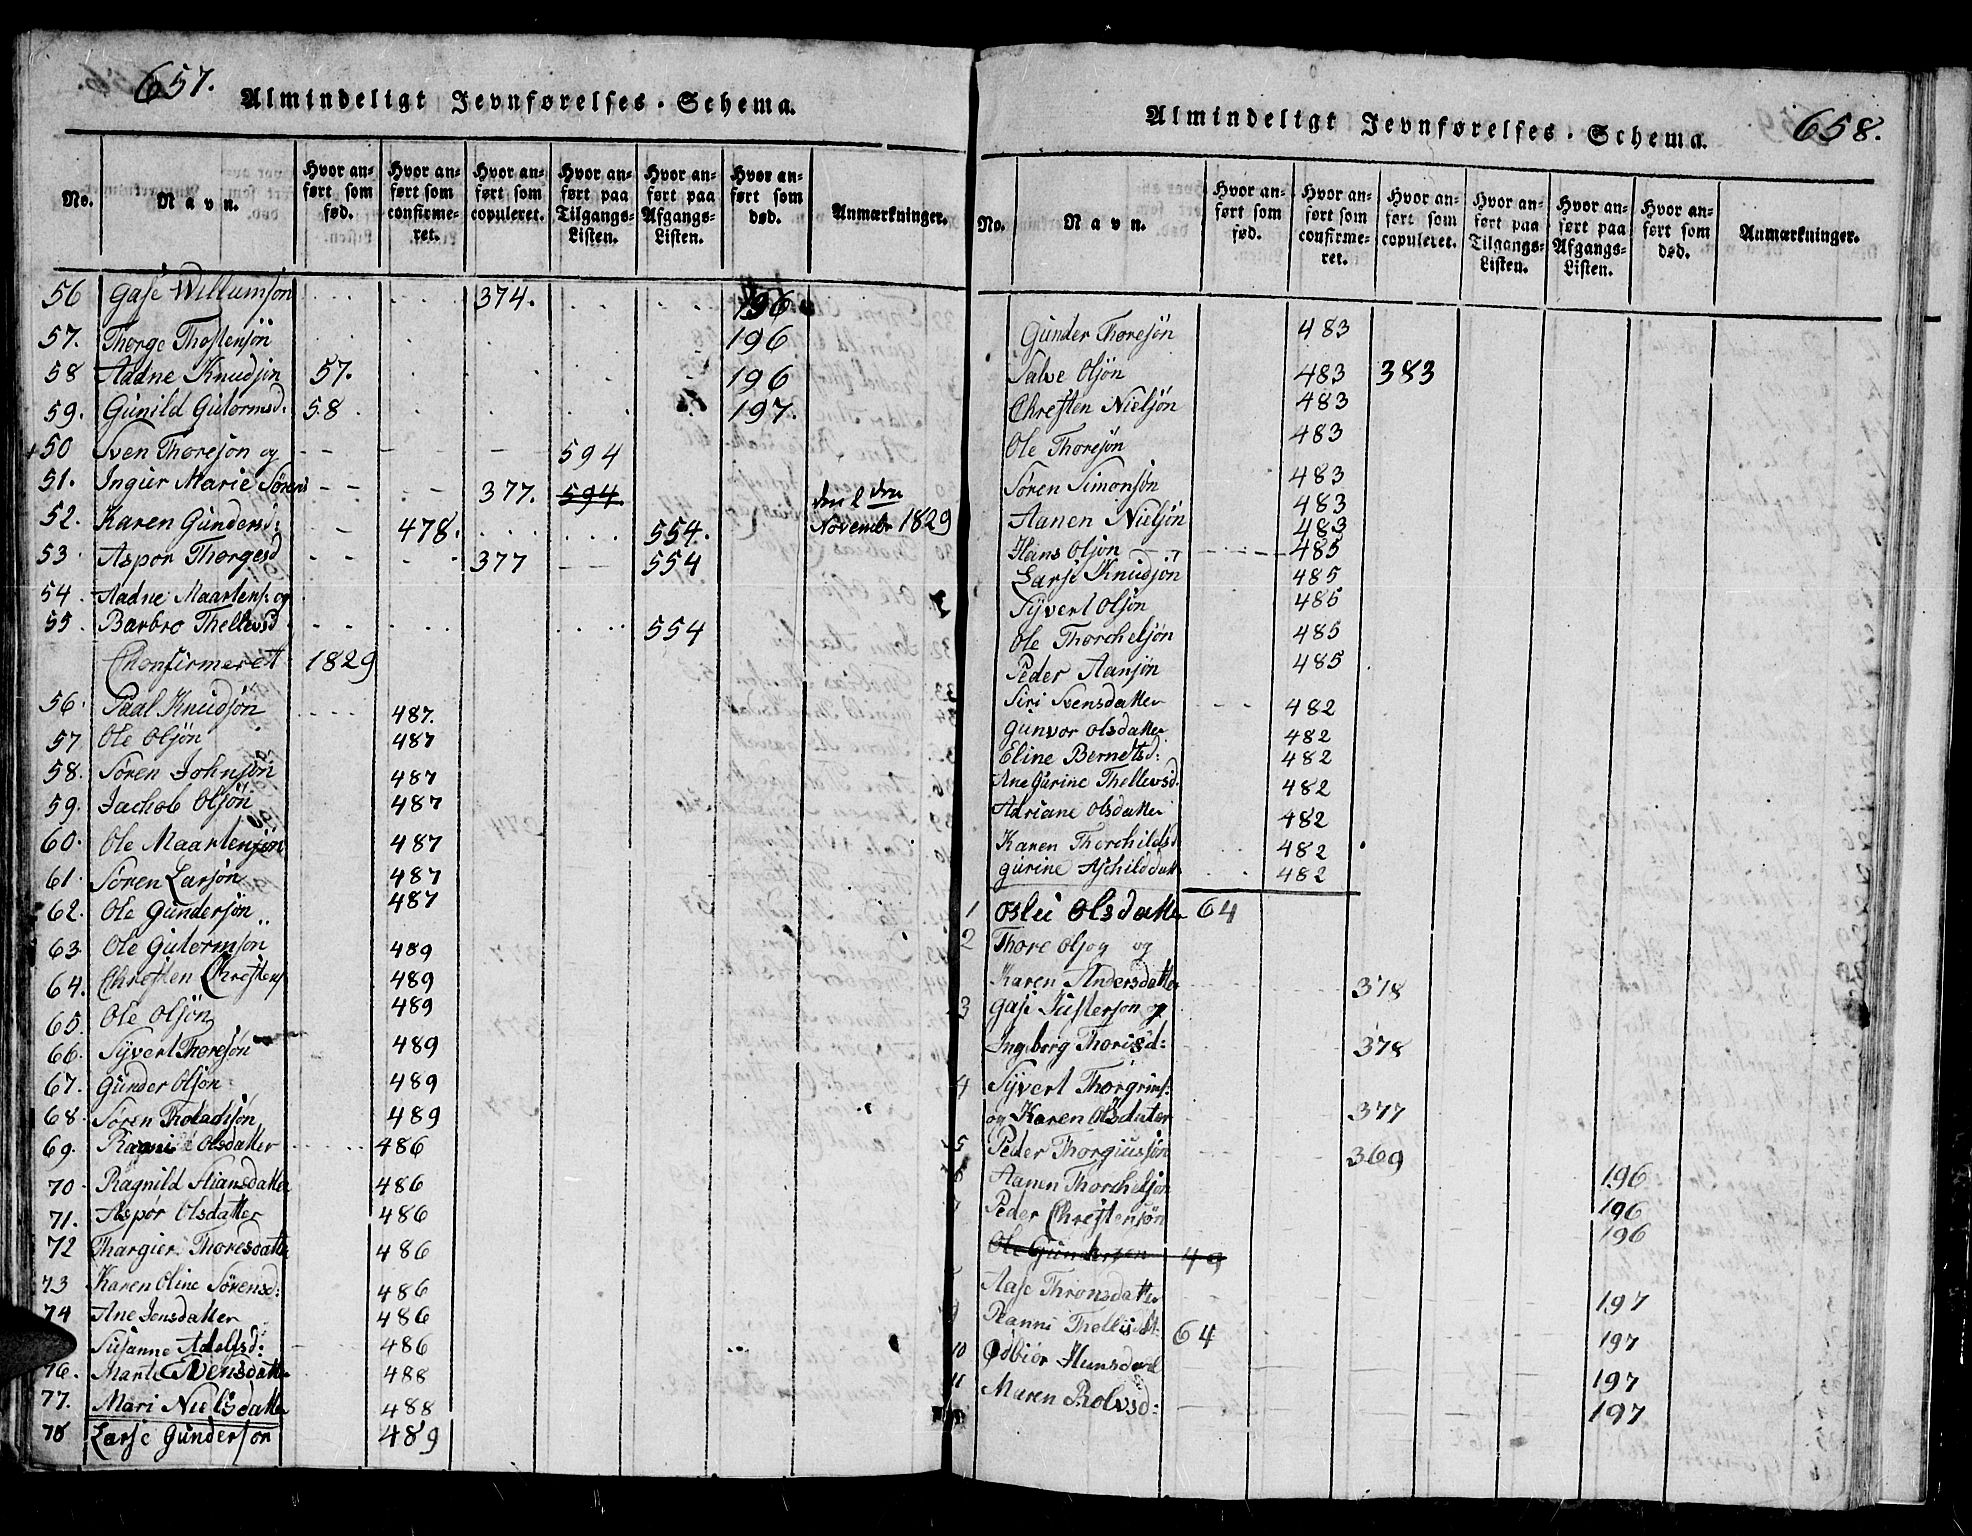 657.
Almindeligt Jevnførelses-Schema.
No. Navn. Hvor anført som fød. Hvor anført som confirmeret. Hvor anført som copuleret. Hvor anført paa Tilgangs-Listen. Hvor anført paa Afgangs-Listen. Hvor anført som død. Anmærkninger.
56 Gase Willumsøn 374. 196
57. Thorge Thostensøn 196
58 Aadne Knudsøn 57. 196
59. Gunild Gutormsd. 58 197.
+50 Sven Thoresøn og 594
51. Ingier Marie Sørens 377. 594
52. Karen Gundersd: 478. 554. den 2 den November 1829
53 Aspor Thorgesd 377 554
54. Aadne Maartens. og
55 Barbro Thellevsd 554
Chonfirmeret 1829
56 Paal Knudsøn 487.
57 Ole Olsøn 487
58. Søren Johnsøn 487
59. Jachob Olsøn 487
60. Ole Maartensøn 487
61. Søren Larsøn 487
62. Ole Gundersøn 487
63 Ole Gutormsøn 489
64. Chresten Chrestens 489
65. Ole Olsøn 489
66. Syvert Thoresøn 489
67. Gunder Olsøn 489
68. Søren Tholachsøn 489
69. Ragnil Olsdatter 486
70 Ragnild Hansdatter 486
71. Aspør Olsdatter 486
72 Thargier Thoresdatter 486
73 Karen Oline Sørensd: 486
74 Ane Jensdatter 486
Susanne Adolfsd: 486
76. Marte Svensdatter 488
77. Mari Nielsdatter 488
78 Larse Gundersøn 489
658.
Almindeligt Jevnførelses-Schema.
No. Navn. Hvor anført som fød. Hvor anført som confirmeret. Hvor anført som copuleret. Hvor anført paa Tilgangs-Listen. Hvor anført paa Afgangs-Listen. Hvor anført som død. Anmærkninger.
Gunder Thoresøn 483
Salve Olsøn 483 383
Chresten Nielsøn 483
Ole Thoresøn 483
Søren Simonsøn 483
Aanen Nielsøn 483
483
Hans Olsøn 485
Larse Knudsøn 485
Syvert Olsøn 485
Ole Thorchelsøn 485
Peder Aansøn 485
Siri Svensdatter 482
Gunvor Olsdatter 482
Eline Berntsd: 482
Ane Gurine Thellevsd. 482
Adriane Olsdatter 482
Karen Thorchildsd 482
Gurine Aschildsdatt 482
1 Oslei Olsdatter 64
2 Thore Olsøn og
Karen Andersdatter 378
3 Gase Justersøn og
Ingeborg Thorisd: 378
4 Syvert Thorgrims:
og Karen Olsdater 377
5 Peder Thorgiussøn 369
6 Aanen Thorchelsøn 196
7 Peder Chrestensøn 196
Ole Gundersen 49 196
Aase Thronsdatter 197
9 Ranni Thellisdt: 64 197
10 Ødbior Hansdatt 197
11 Maren Rolvsd: 197